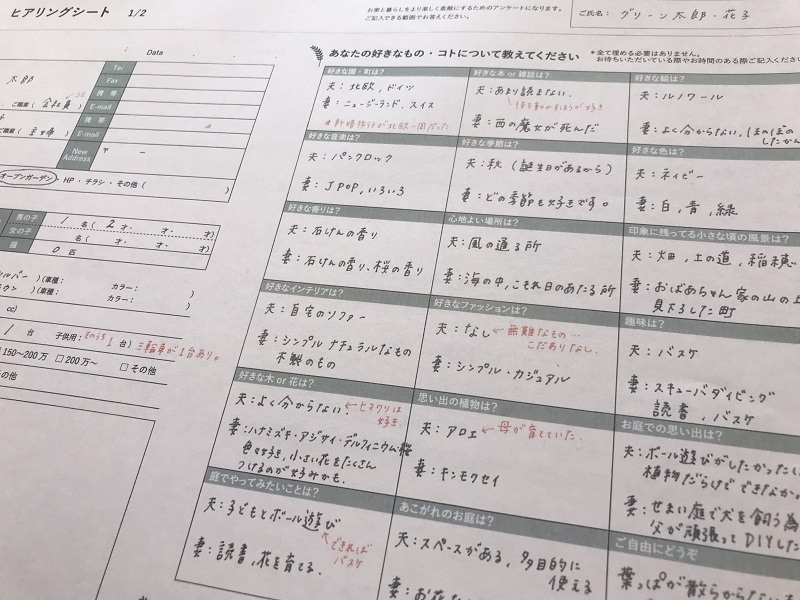 ヒアリングシート 1/2
お家と暮らしをより楽しく素敵にするためのアンケートになります。
ご記入できる範囲でお答えください。
ご氏名： グリーン太郎・花子
Data
太郎
Tel
Fax
携帯
ご職業（ 会社員
E-mail
携帯
ご職業（ 主婦
E-mail
New Address 〒 －
オープンガーデン ・HP・チラシ・その他（ ）
男の子 1 名（ 2 才・ 才・ 才）
女の子 名（ 才・ 才・ 才）
0 匹
シルバー ）（車種： カラー： ）
）（車種： カラー： ）
cc)
1 台 子供用： そのうち 1 台） 三輪車が1台あり。
□150～200万 □200万～ □その他
の他
あなたの好きなもの・コトについて教えてください
＊全て埋める必要はありません。
お待ちいただいている際やお時間のある際ご記入ください。
好きな国・町は？
夫：北欧、ドイツ
妻：ニュージーランド、スイス
＊新婚旅行が北欧一周だった
好きな本 or 雑誌は？
夫：あまり読まない。
妻：西の魔女が死んだ
好きな絵は？
夫：ルノワール
妻：よく分からない、ほのぼの
したかん
好きな音楽は？
夫：パンクロック
妻：JPOP、いろいろ
好きな季節は？
夫：秋（誕生日があるから）
妻：どの季節も好きです。
好きな色は？
夫：ネイビー
妻：白、青、緑
好きな香りは？
夫：石けんの香り
妻：石けんの香り、桜の香り
心地よい場所は？
夫：風の通る所
妻：海の中、こもれ日のあたる所
印象に残ってる小さな頃の風景は？
夫：畑、土の道、稲穂
妻：おばあちゃん家の山の上
見下ろした町
好きなインテリアは？
夫：自宅のソファー
妻：シンプル ナチュラルなもの
木製のもの
好きなファッションは？
夫：なし ←無難なもの…
こだわりなし。
妻：シンプル・カジュアル
趣味は？
夫：バスケ
妻：スキューバダイビング
読書、バスケ
好きな木 or 花は？
夫：よく分からない。 ←ヒマワリは
好き。
妻：ハナミズキ・アジサイ・デルフィニウム・桜
色々好き、小さい花をたくさん
つけるのが好みかも。
思い出の植物は？
夫：アロエ ←母が育てていた。
妻：キンモクセイ
お庭での思い出は？
夫：ボール遊びがしたかったい
植物だらけできなか
妻：せまい庭で犬を飼う為
父が頑張ってDIYした
庭でやってみたいことは？
夫：子どもとボール遊び
できれば
バスケ
妻：読書、花を育てる。
あこがれのお庭は？
夫：スペースがある、多目的に
使える
妻：お花
ご自由にどうぞ
葉っぱが散らからない